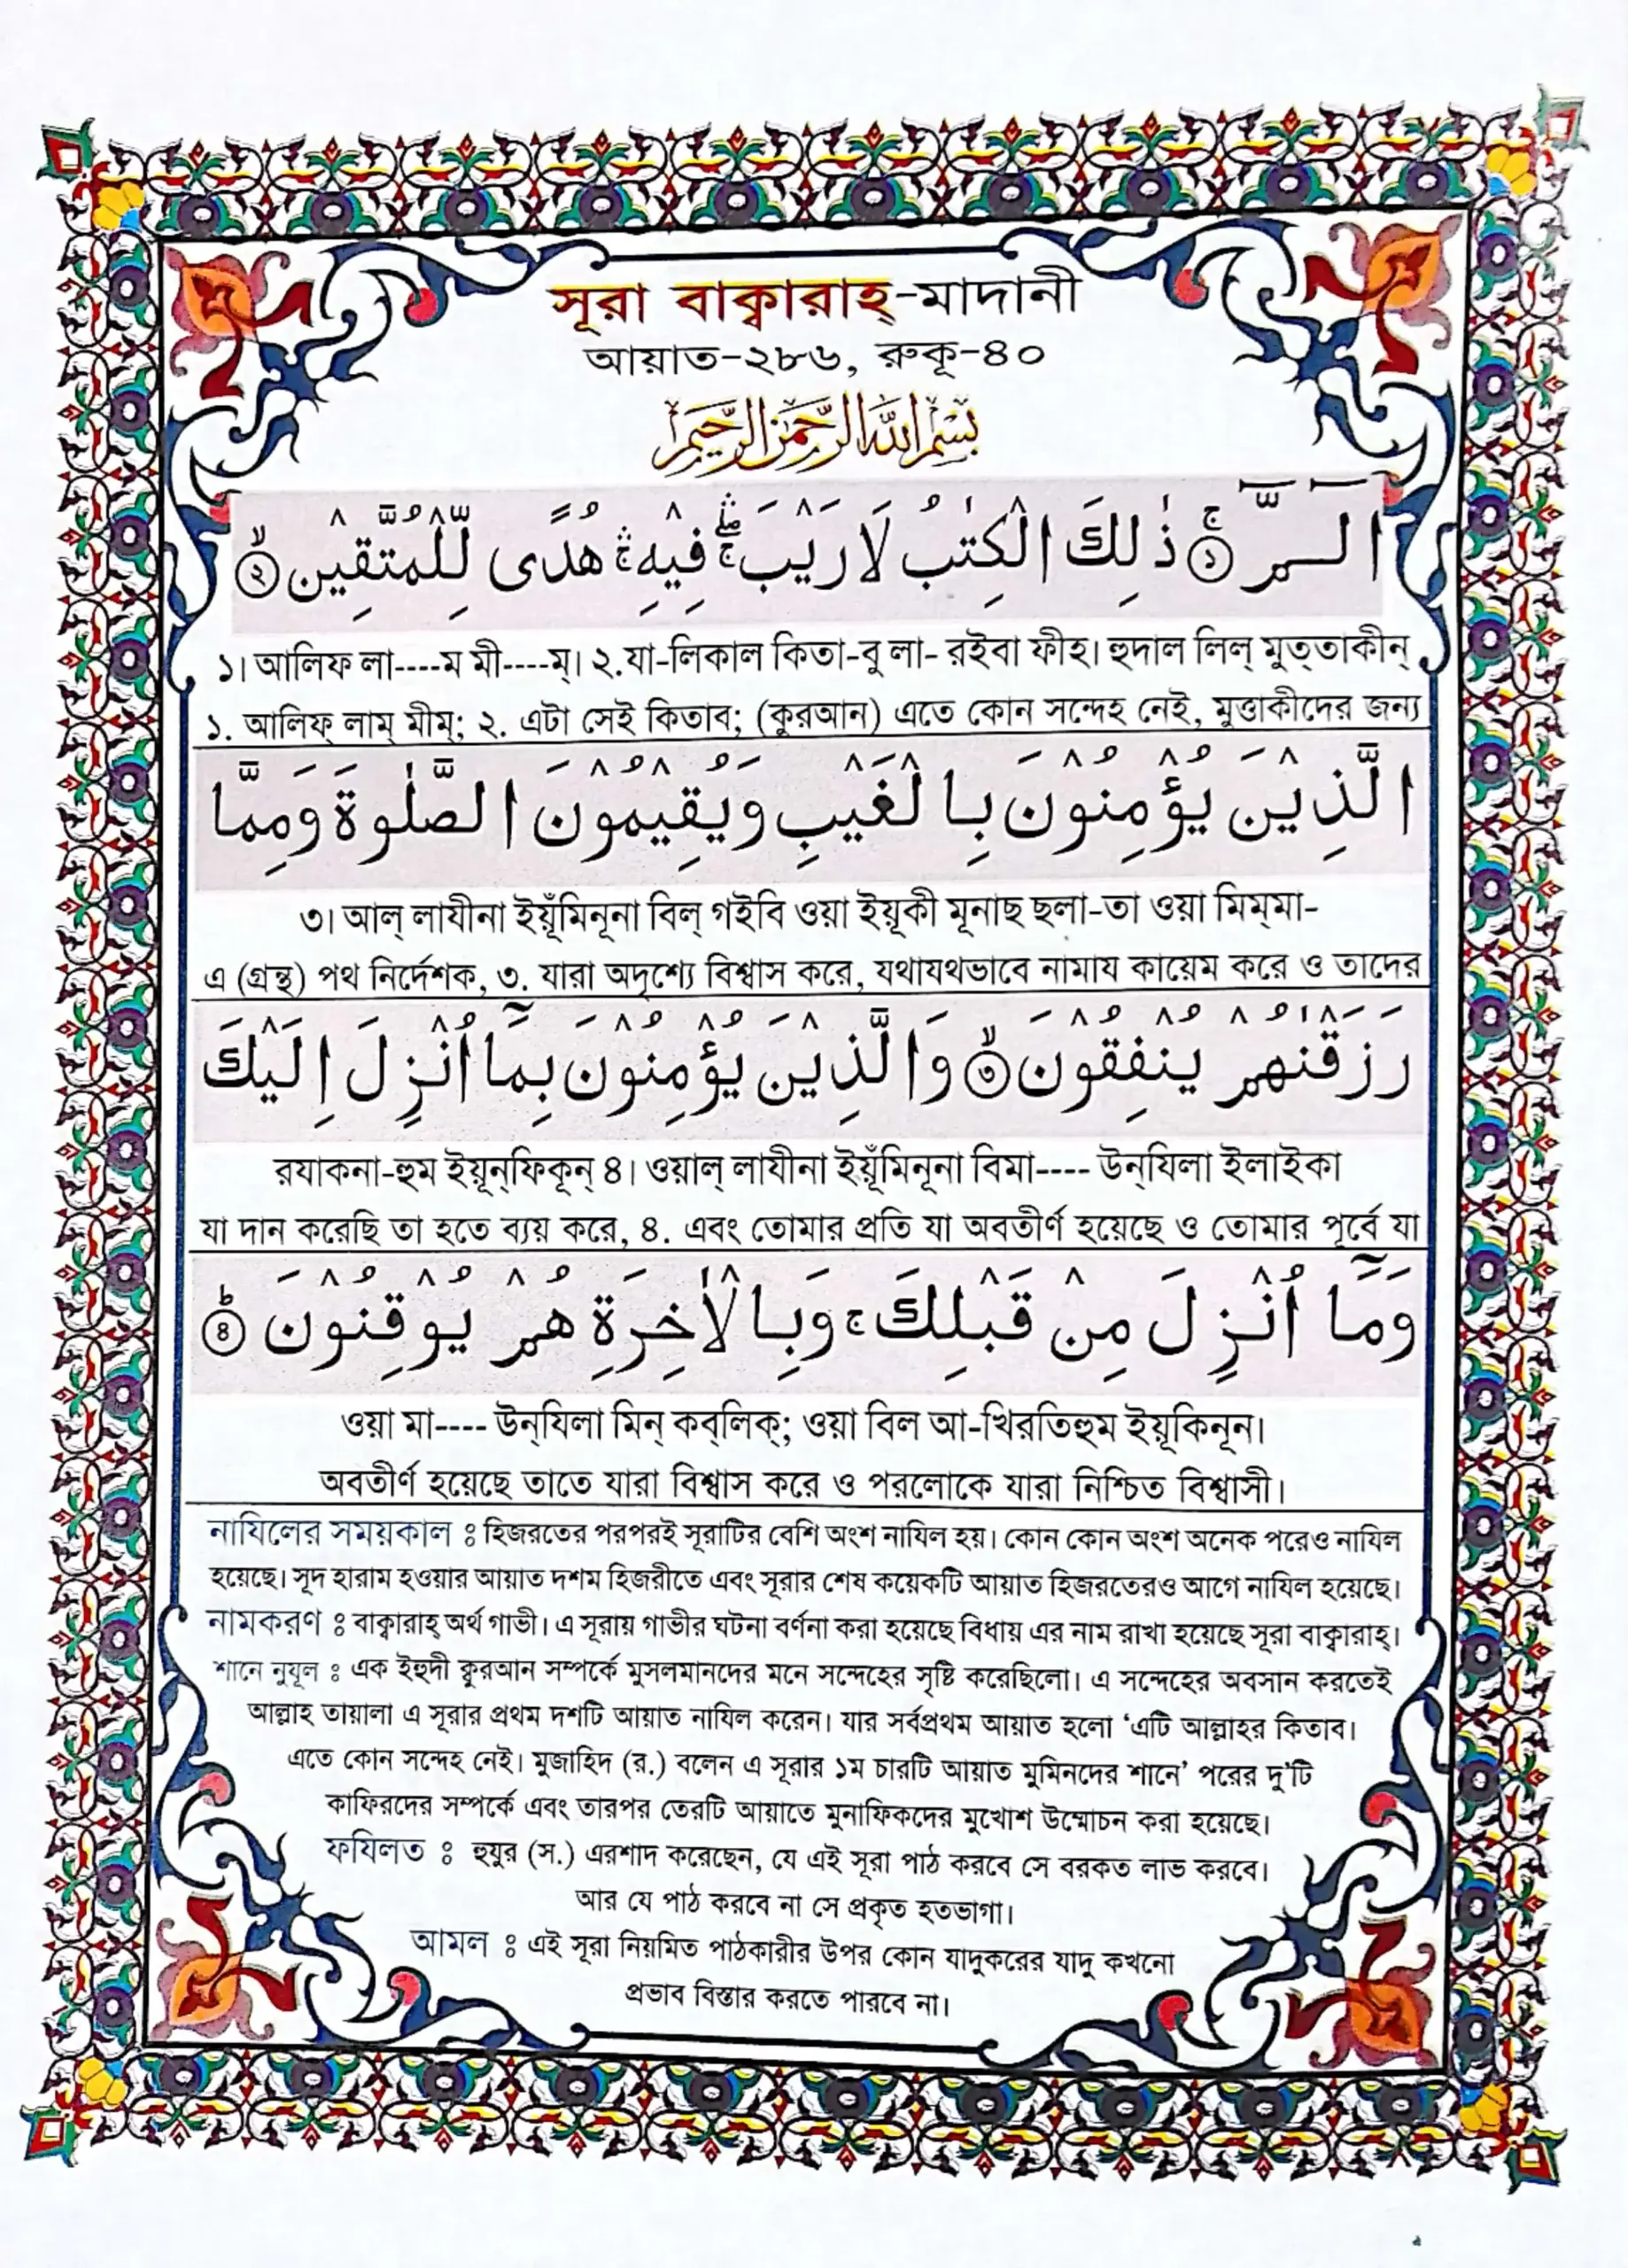 সূরা বাক্বারাহ্-মাদানী
আয়াত-২৮৬, রুকূ-৪০
بِسْمِ اللهِ الرَّحْمٰنِ الرَّحِيْمِ
الٓـمّٓ ۚ﴿۱﴾ ذٰلِكَ الْكِتٰبُ لَا رَيْبَ ۛۖۚ فِيْهِ ۛۚ هُدًى لِّلْمُتَّقِيْنَ ۙ﴿۲﴾
১। আলিফ লা----ম মী----ম্। ২.যা-লিকাল কিতা-বু লা- রইবা ফীহ। হুদাল লিল্ মুত্তাকীন্
১. আলিফ্ লাম্ মীম্; ২. এটা সেই কিতাব; (কুরআন) এতে কোন সন্দেহ নেই, মুত্তাকীদের জন্য
الَّذِيْنَ يُؤْمِنُوْنَ بِالْغَيْبِ وَيُقِيْمُوْنَ الصَّلٰوةَ وَمِمَّا
৩। আল্ লাযীনা ইয়ূঁমিনূনা বিল্ গইবি ওয়া ইয়ূকী মূনাছ ছলা-তা ওয়া মিম্মা-
এ (গ্রন্থ) পথ নির্দেশক, ৩. যারা অদৃশ্যে বিশ্বাস করে, যথাযথভাবে নামায কায়েম করে ও তাদের
رَزَقْنٰهُمْ يُنْفِقُوْنَ ۙ﴿۳﴾ وَالَّذِيْنَ يُؤْمِنُوْنَ بِمَاۤ اُنْزِلَ اِلَيْكَ
রযাকনা-হুম ইয়ূন্ফিকূন্ ৪। ওয়াল্ লাযীনা ইয়ূঁমিনূনা বিমা---- উন্যিলা ইলাইকা
যা দান করেছি তা হতে ব্যয় করে, ৪. এবং তোমার প্রতি যা অবতীর্ণ হয়েছে ও তোমার পূর্বে যা
وَمَاۤ اُنْزِلَ مِنْ قَبْلِكَ ۚ وَبِالْاٰخِرَةِ هُمْ يُوْقِنُوْنَ ؕ﴿۴﴾
ওয়া মা---- উন্যিলা মিন্ কব্লিক্; ওয়া বিল আ-খিরতিহুম ইয়ূকিনূন।
অবতীর্ণ হয়েছে তাতে যারা বিশ্বাস করে ও পরলোকে যারা নিশ্চিত বিশ্বাসী।
নাযিলের সময়কাল ঃ হিজরতের পরপরই সূরাটির বেশি অংশ নাযিল হয়। কোন কোন অংশ অনেক পরেও নাযিল
হয়েছে। সূদ হারাম হওয়ার আয়াত দশম হিজরীতে এবং সূরার শেষ কয়েকটি আয়াত হিজরতেরও আগে নাযিল হয়েছে।
নামকরণ ঃ বাক্বারাহ্ অর্থ গাভী। এ সূরায় গাভীর ঘটনা বর্ণনা করা হয়েছে বিধায় এর নাম রাখা হয়েছে সূরা বাক্বারাহ্।
শানে নুযূল ঃ এক ইহুদী ক্বুরআন সম্পর্কে মুসলমানদের মনে সন্দেহের সৃষ্টি করেছিলো। এ সন্দেহের অবসান করতেই
আল্লাহ তায়ালা এ সূরার প্রথম দশটি আয়াত নাযিল করেন। যার সর্বপ্রথম আয়াত হলো ‘এটি আল্লাহর কিতাব।
এতে কোন সন্দেহ নেই। মুজাহিদ (র.) বলেন এ সূরার ১ম চারটি আয়াত মুমিনদের শানে’ পরের দু'টি
কাফিরদের সম্পর্কে এবং তারপর তেরটি আয়াতে মুনাফিকদের মুখোশ উম্মোচন করা হয়েছে।
ফযিলত ঃ হুযুর (স.) এরশাদ করেছেন, যে এই সূরা পাঠ করবে সে বরকত লাভ করবে।
আর যে পাঠ করবে না সে প্রকৃত হতভাগা।
আমল ঃ এই সূরা নিয়মিত পাঠকারীর উপর কোন যাদুকরের যাদু কখনো
প্রভাব বিস্তার করতে পারবে না।